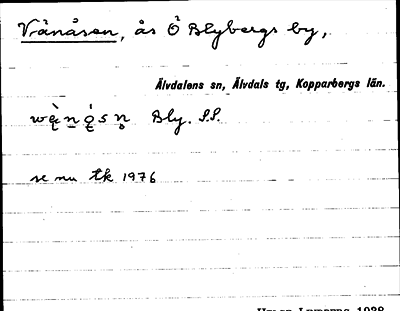 Vånåsen, ås Ö Blybergs by,
Älvdalens sn, Älvdals tg, Kopparbergs län.
Bly. S.S.
se nu tk 1976
1928